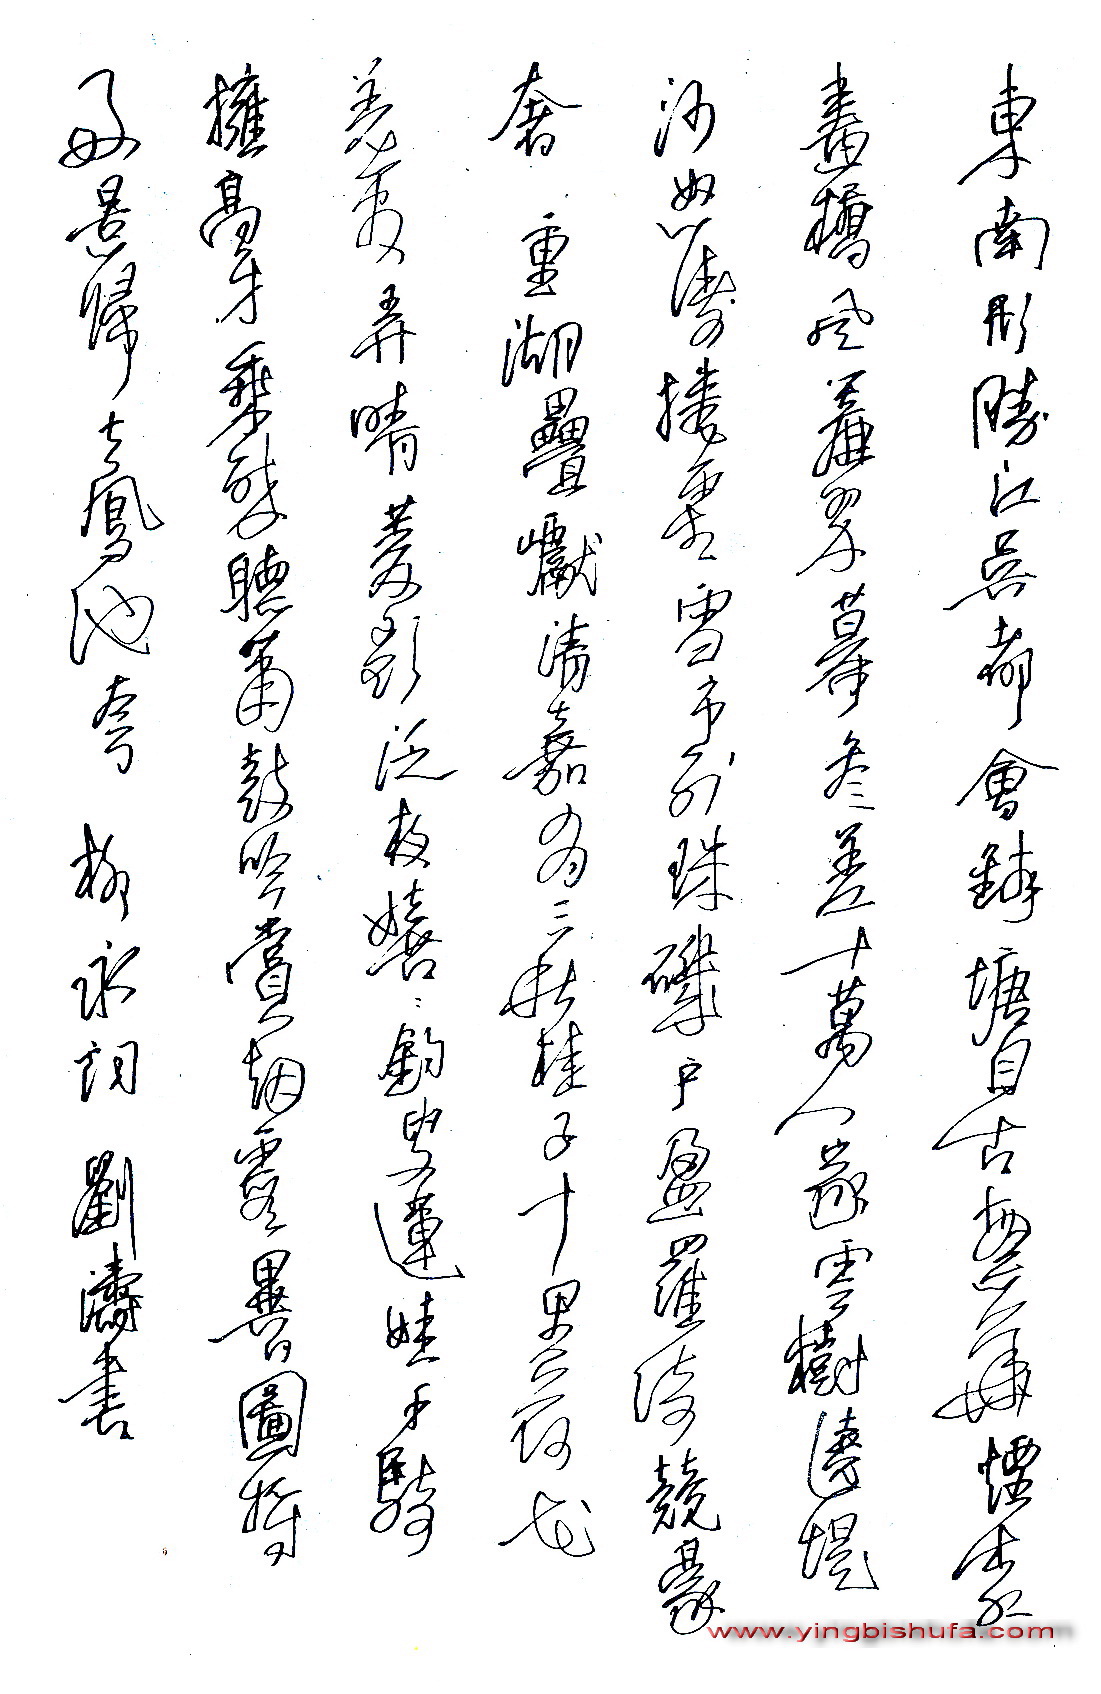 東南形勝江吴都會錢塘自古繁華煙柳
畫橋風簾翠幕參差十萬人家雲樹遶堤
沙怒濤捲霜雪市列珠璣户盈羅綺競豪
奢 重湖疊巘清嘉有三秋桂子十里荷花
羌管弄晴菱歌泛夜嬉々釣叟蓮娃千騎
擁高牙乘醉聽簫鼓吟賞烟霞異日圖將
好景歸去鳳池夸 柳永詞 劉濤書
www.yingbishufa.com